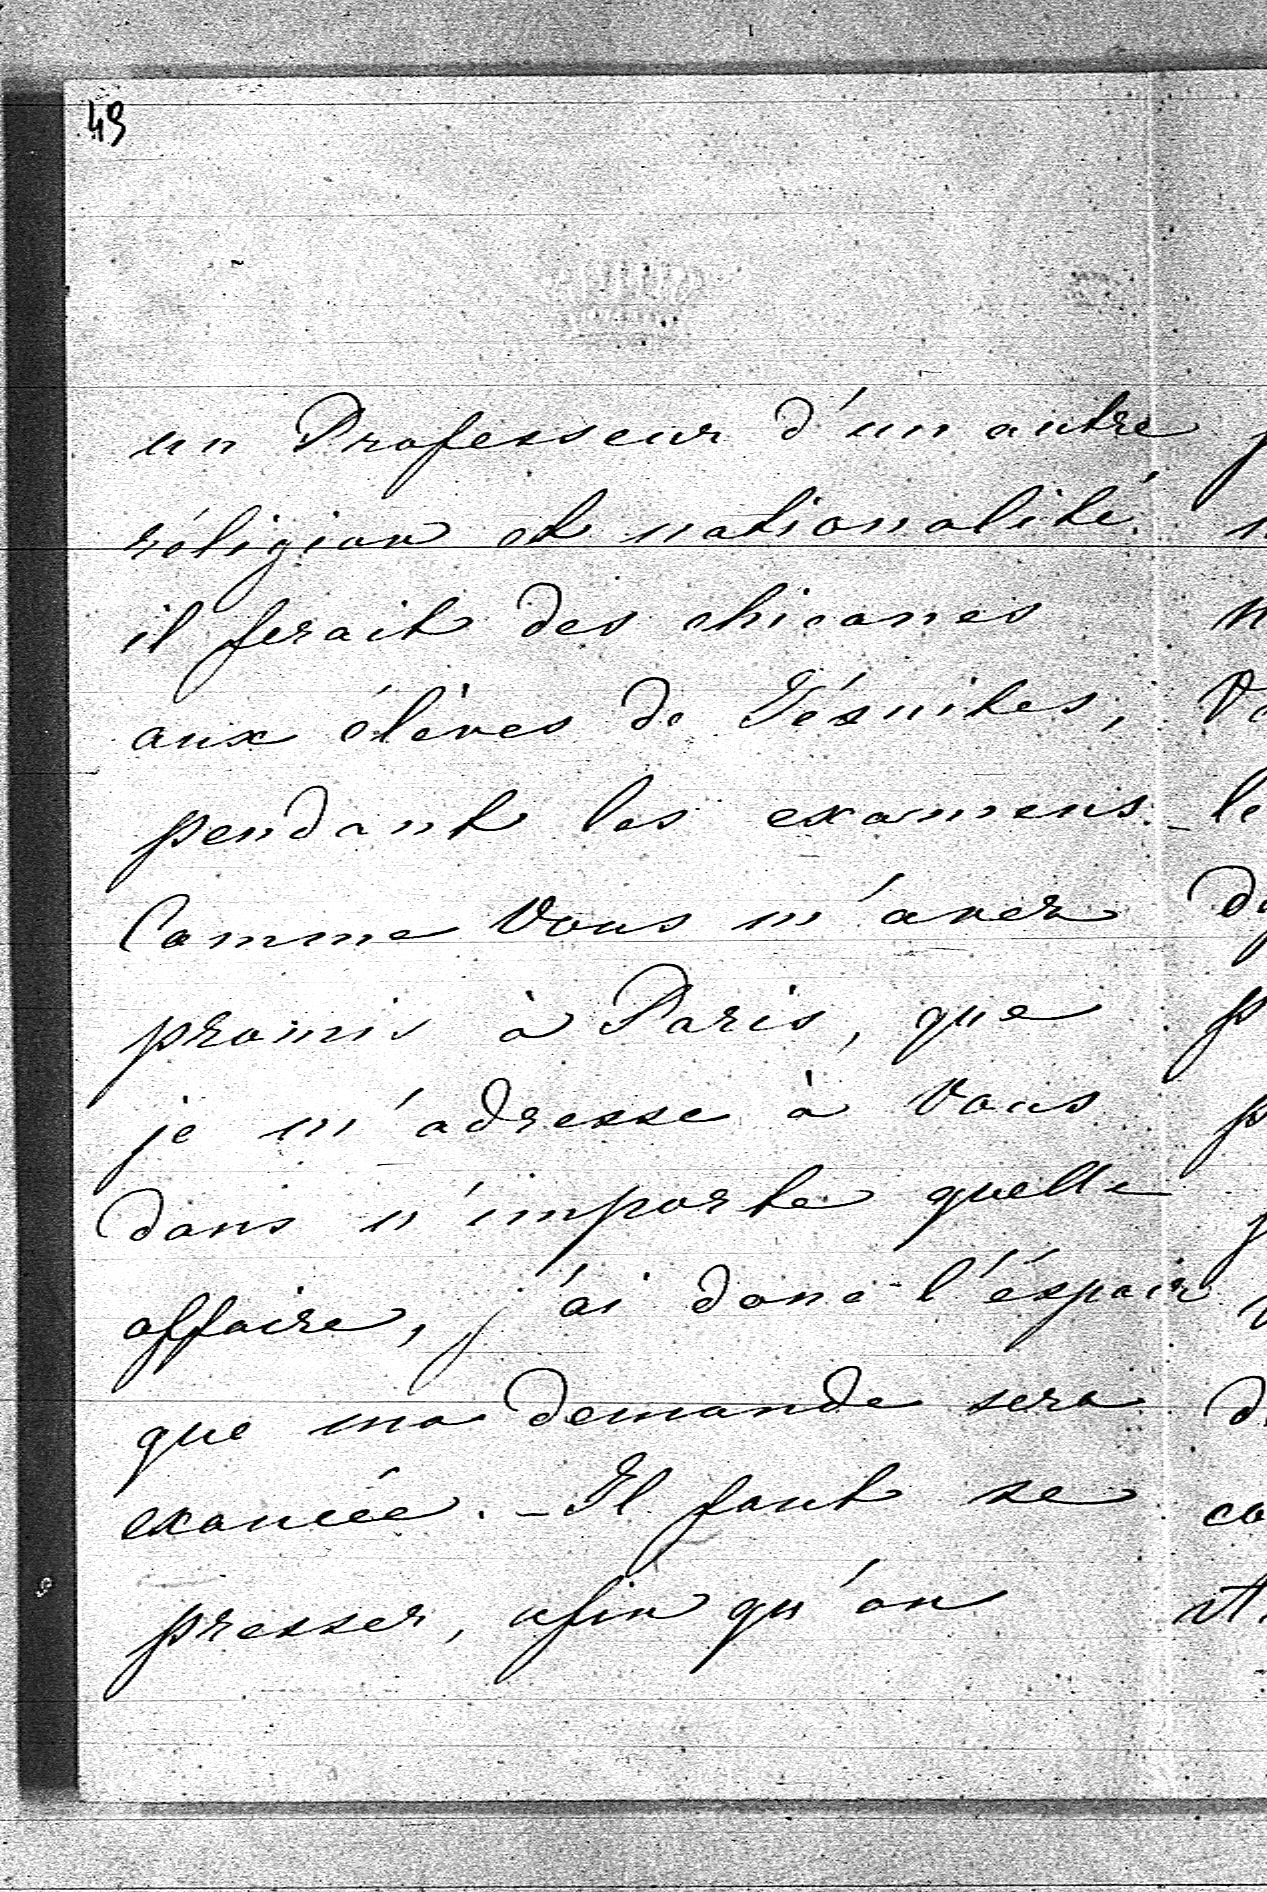 49
un Professeur d'un autre
réligion et nationalité
il ferait des chicanes
aux élèves de Jésuites,
pendant les examens. -
Comme Vous m'avez
promis à Paris, que
je m'adresse à Vous
dans n'importe quelle
affaire, j'ai donc l'éspoir
que ma demande sera
exaucée. - Il faut se
presser, afin qu'on